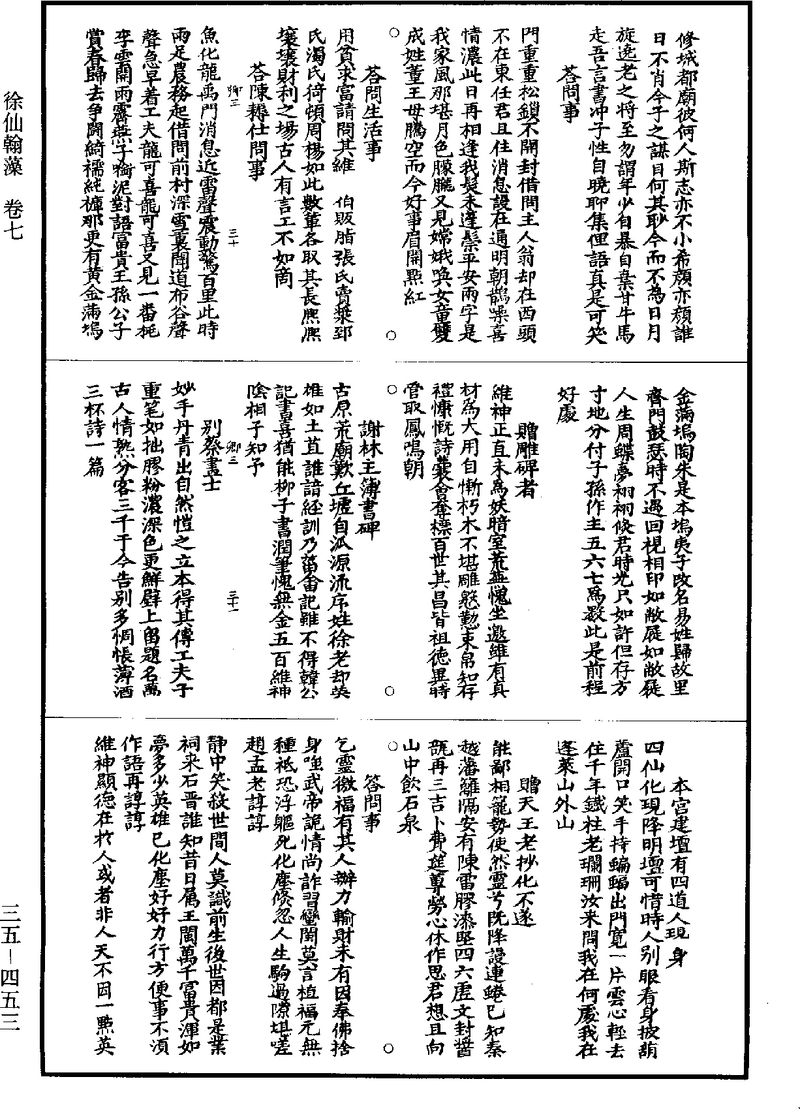 修城都廟彼何人斯志亦不小希顏亦顏誰
日不肖今子之謀日何其耿今而不為日月
旋逸老之將至勿謂年少自暴自棄甘牛馬
走吾言書冲子性自曉聊集俚語真是可笑
荅問事
門重重松鎖不開封借問主人翁却在西頭
不在東任君且住消息設在通明朝鵲噪喜
情濃此日再相逢我髮未蓬鬆平安兩字是
我家風那堪月色朦朧又見嫦娥喚女童雙
成姓董王母騰空而今好事眉開點紅
荅問生活事
用貧求富請問其維 伯販脂張氏賣漿郅
氏濁氏荷頓周楊如此數輩各取其長熙熙
壤壤財利之場古人有言工不如商
荅陳耨仕問事
魚化龍禹門消息近雷聲震動驚百里此時
雨足晨務起借問前村深雪裏聞道布谷聲
聲急早着工夫龍可喜龍可喜又見一番桃
李雲開雨霽燕子啣泥對語富貴王孫公子
賞春歸去爭鬪綺襦紈褲那更有黃金滿塢
金滿塢陶朱是本塢夷子改名易姓歸故里
齊門鼓瑟時不遇回視相印如敝屣如敝屣
人生周蝶夢栩栩倏君時光只如許但存方
寸地分付子孫作主五六七為數此是前程
好處
贈雕碑者
維神正直未為妖暗室荒蕪愧坐邀雖有真
材為大用自慚朽木不堪雕慇懃束帛知存
禮慷慨詩囊會奪標百世其昌皆祖德異時
管取鳳鳴朝
謝林主簿書碑
古原荒廟歎丘墟自派源流序姓徐老却英
雄如土苴誰諳經訓乃菑畬記雖不得韓公
記書喜猶能柳子書潤筆愧無金五百維神
陰相子知予
別蔡畫士
妙手丹青出自然愷之立本得其傳工夫子
重笔如拙膠粉濃深色更鮮壁上留題名萬
古人情熟分客三千于今告別多惆悵薄酒
三杯詩一篇
本宮建壇有四道人現身
四仙化現降明壇可惜時人別眼看身披葫
蘆開口笑手持蝙蝠出門寬一片雲心輕去
住千年鐵柱老斕珊汝來問我在何處我在
蓬萊山外山
贈天王老抄化不遂
能鄙相籠勢使然靈兮既降謾連蜷已知秦
越藩籬隔安有陳雷膠漆堅四六虛文封醬
瓿再三吉卜費筵蓴勞心休作思君想且向
山中飲石泉
荅問事
乞靈徼福有其人辦力輸財未有因奉佛捨
身唯武帝詭情尚詐習蠻閩莫言植福元無
種祇恐浮軀死化塵倐忽人生駒過隙堪嗟
趙孟老諄諄
靜中笑殺世間人莫識前生後世因都是業
祠來石晉誰知昔日屬王閩萬千富貴渾如
夢多少英雄已化塵好好力行方便事不湏
作語再諄諄
維神顯德在於人或者非人天不因一點英
徐仙翰藻 卷七
卿二 三十
卿三 三十一
三五－四五三